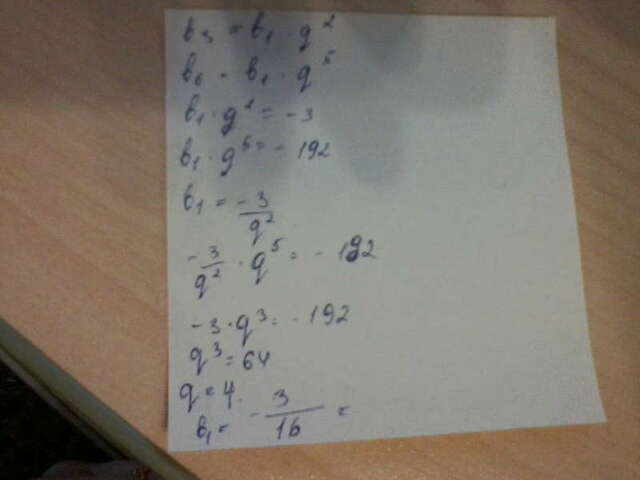 b₃ = b₁ · q²
b₆ = b₁ · q⁵
b₁ · q² = -3
b₁ · q⁵ = -192
b₁ = -3/q²
-3/q² · q⁵ = -192
-3 · q³ = -192
q³ = 64
q = 4.
b₁ = -3/16 =